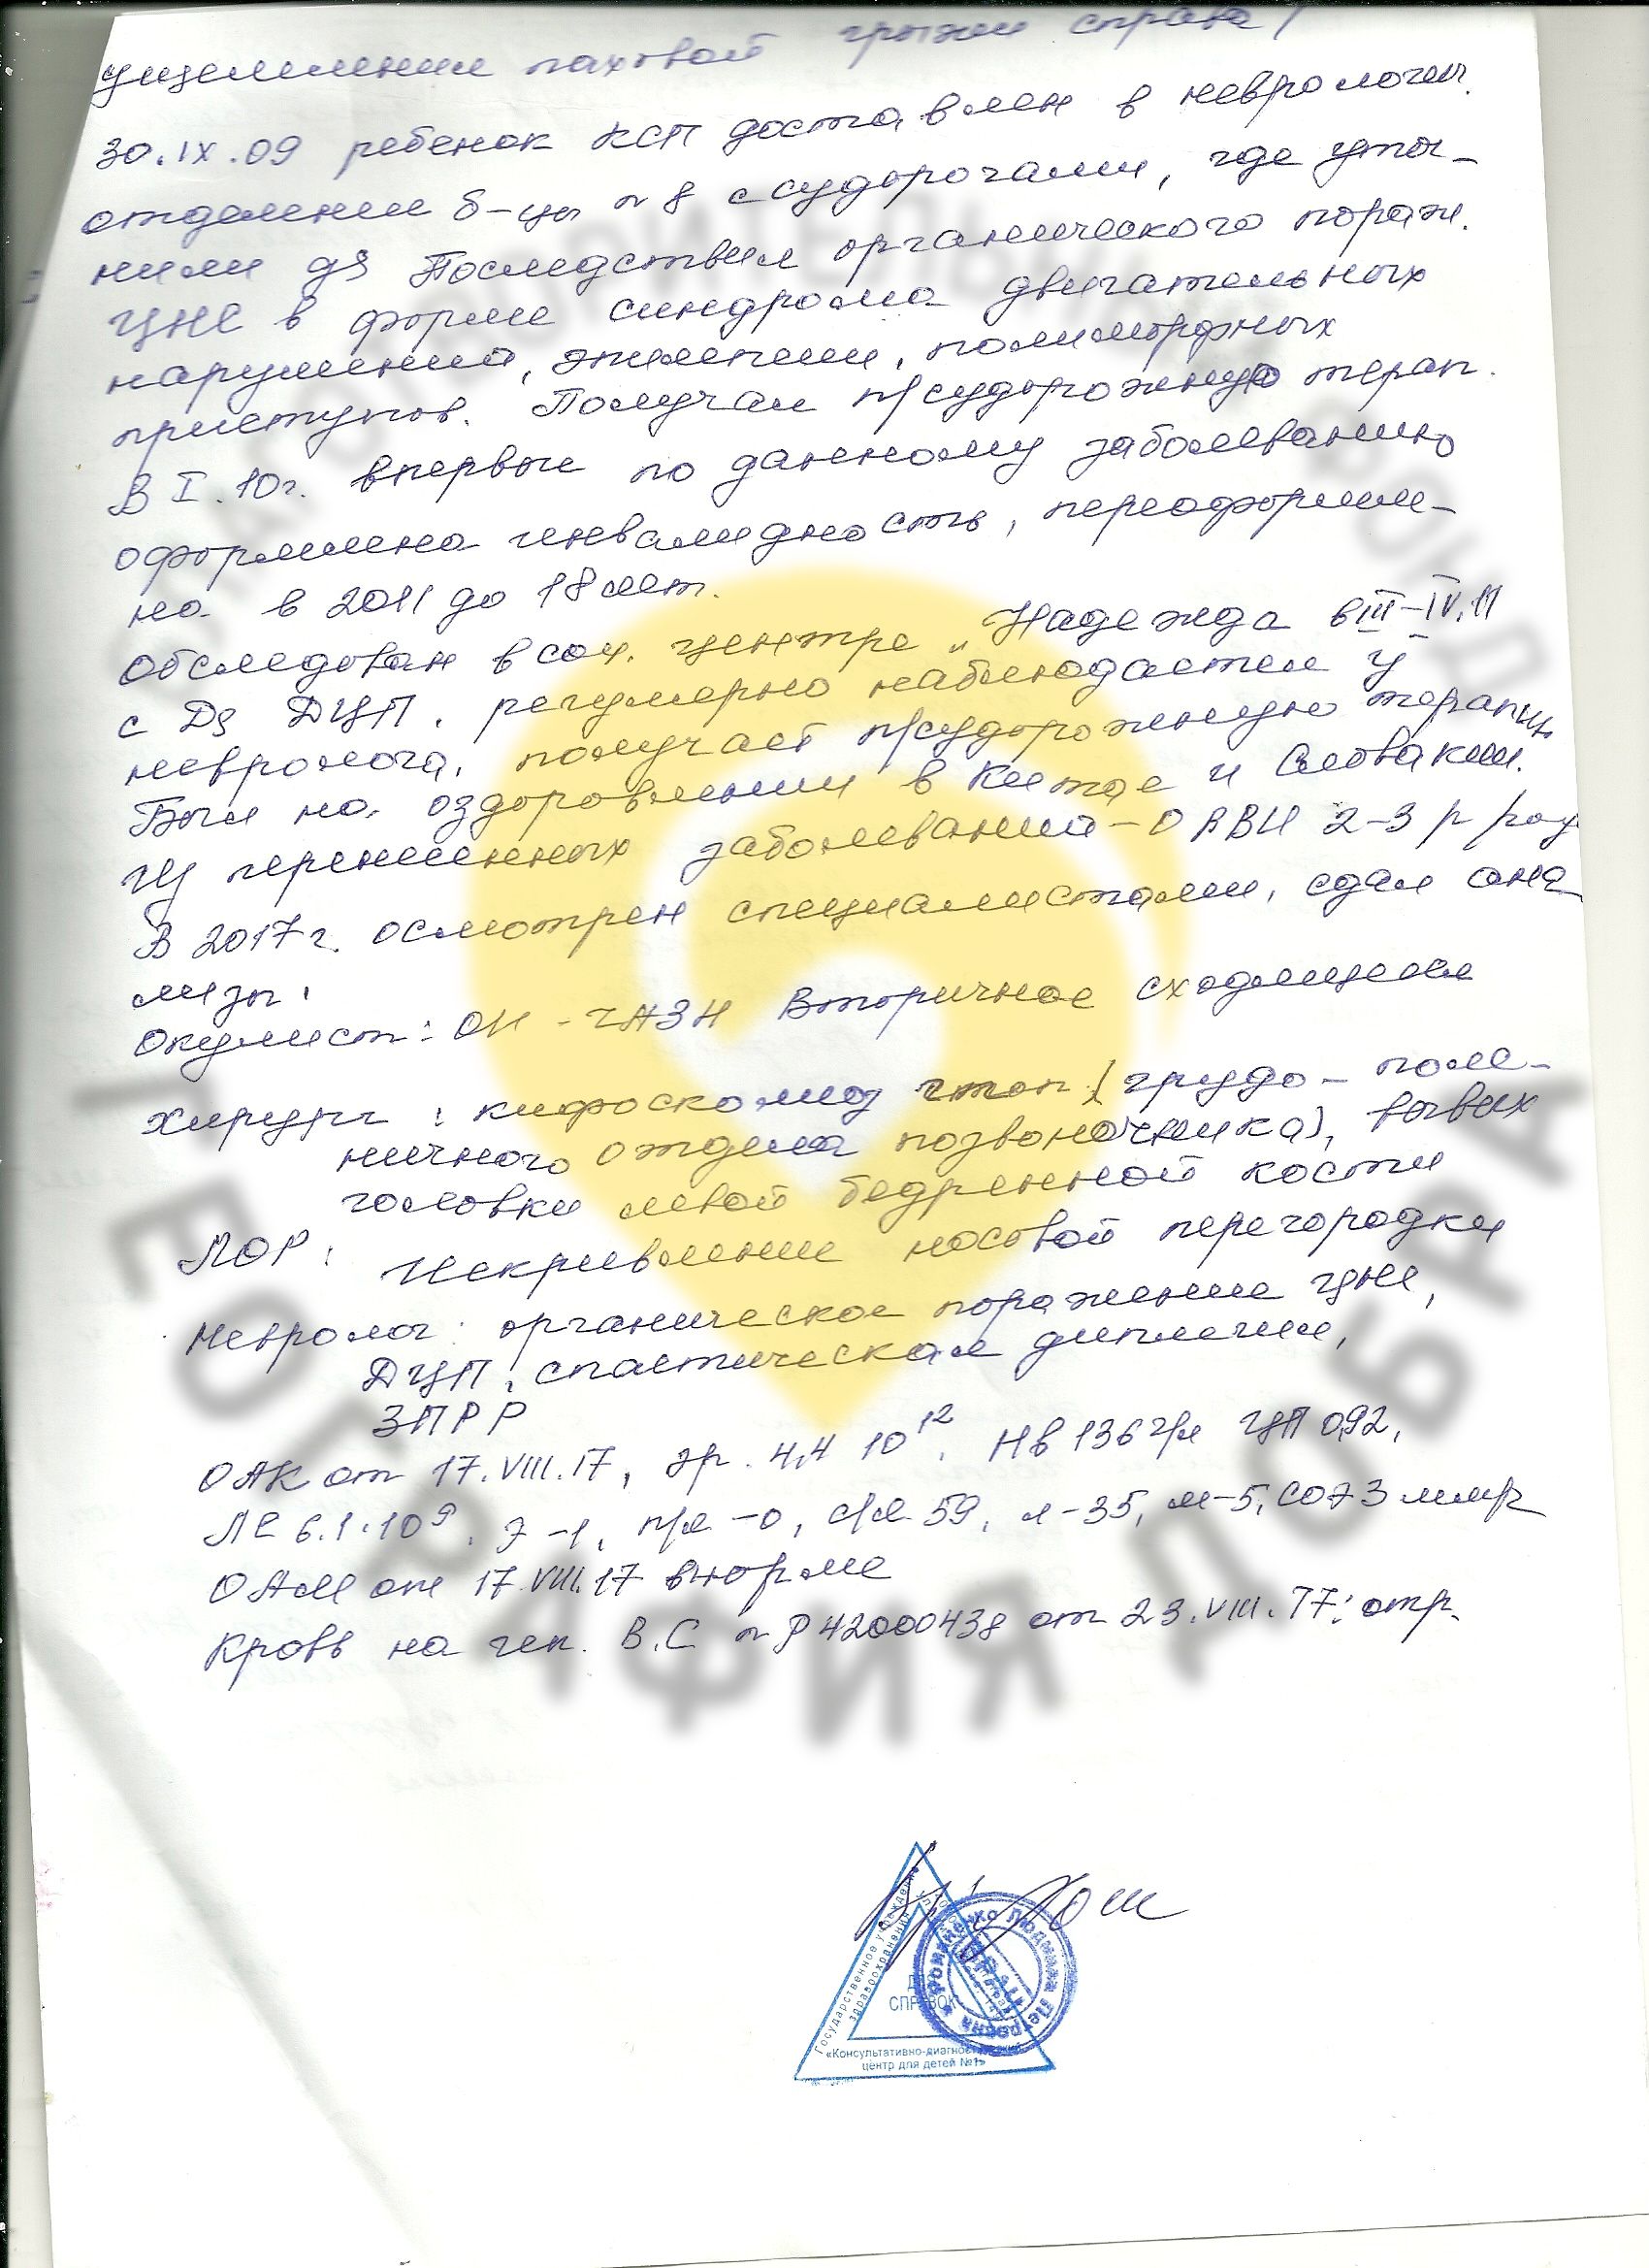 ущемлении паховой грыжи справа /
30.IX.09 ребенок КСП доставлен в неврологич.
отделении б-цы №8 с судорогами, где уточ-
нили ДЗ Последствия органического пораж.
ЦНС в форме синдрома двигательных
нарушений, эпилепсии, полиморфных
приступов. Получал п/судорожную терап.
В I.10г. впервые по данному заболеванию
оформлена инвалидность, переоформле-
на в 2011 до 18 лет.
Обследован в соц. центре „Надежда в III-IV.11
с Дз ДЦП, регулярно наблюдается у
невролога, получает п/судорожную терапию
Были на оздоровлении в Китае и Словакии.
Из перенесенных заболеваний - ОРВИ 2-3 р/год
В 2017г. осмотрен специалистами, сдал ана-
лизы.
Окулист: ОИ - ЧАЗН Вторичное сходящееся
Хирург: кифосколиоз (грудо-пояс-
ничного отдела позвоночника), вывих
головки левой бедренной кости
ЛОР: Искривление носовой перегородки
Невролог: органическое поражение ЦНС,
ДЦП, спастическая диплегия,
ЗПРР
ОАК от 17.VIII.17, эр. 4,4 10¹², Нв 136 г/л ЦП 0,92,
ЛЕ 6.1·10⁹, э-1, п/я -0, с/я 59, л-35, м-5, СОЭ 3 мм/г
ОАМ от 17.VIII.17 в норме
Кровь на геп. В.С № Р42000438 от 23.VIII.17: отр.
Государственное учреждение
здравоохранения
СПРАВОК
«Консультативно-диагностический
центр для детей №1»
Людмила Петровна
ВРАЧ
БЛАГОТВОРИТЕЛЬНЫЙ ФОНД
ГЕОГРАФИЯ ДОБРА